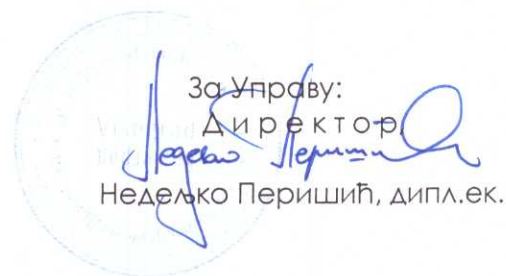 За Управу:
Д и р е к т о р,
Недељко Перишић
Недељко Перишић, дипл.ек.